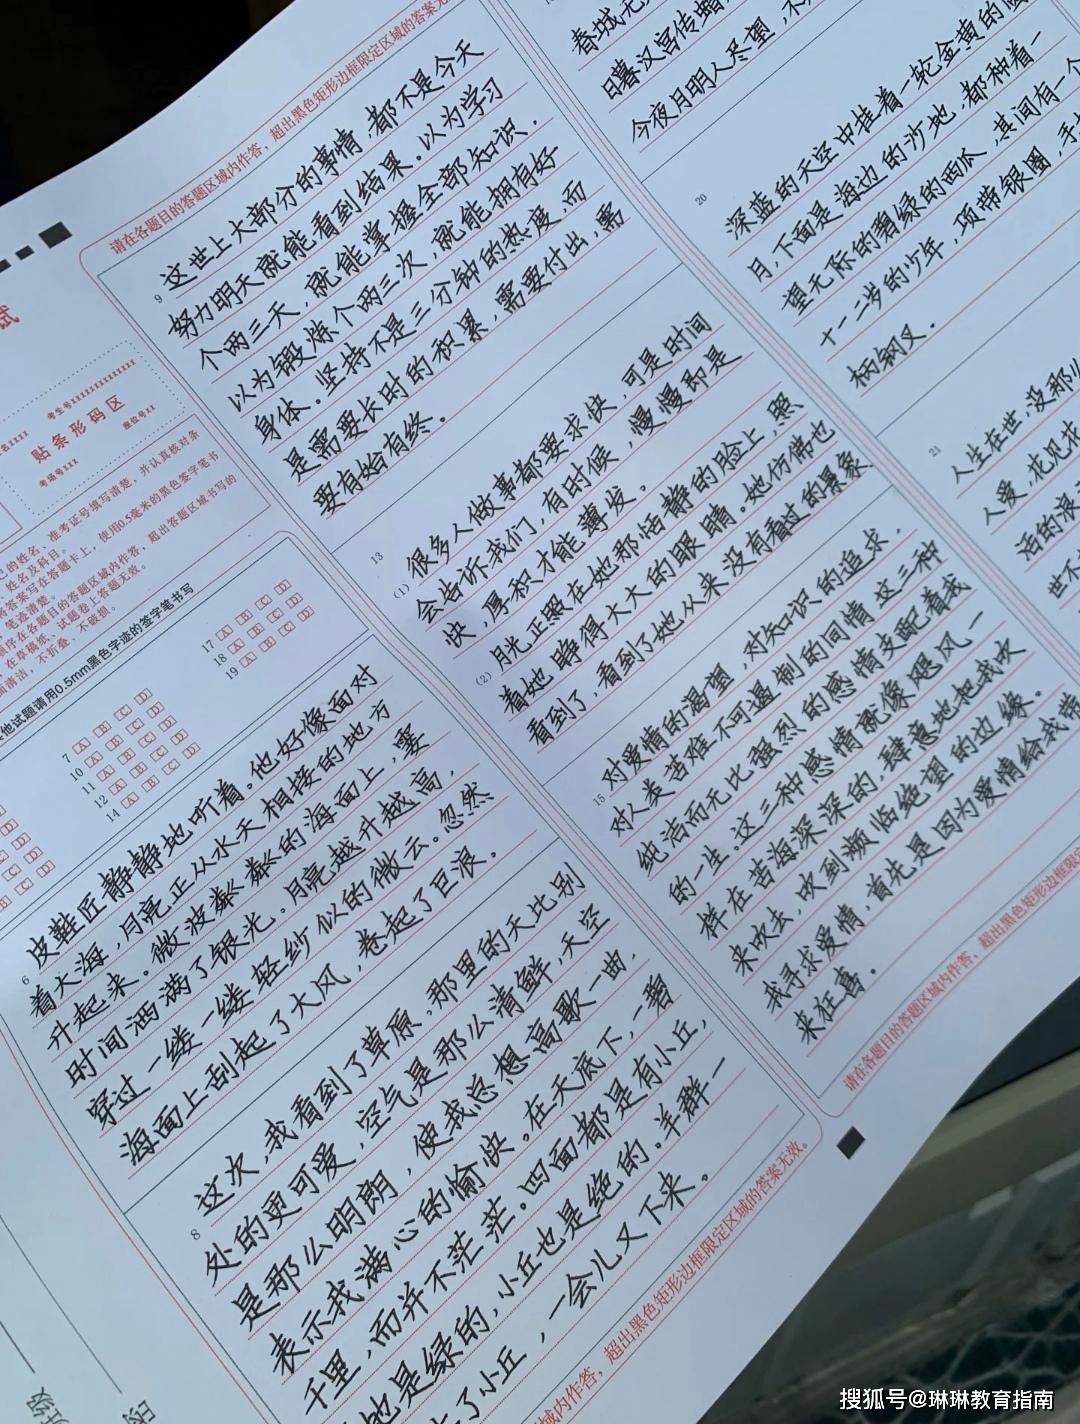 试
考生号XXXXXXXXXXXXXXX
贴条形码区
考场号XXX
座位号XX
17 [A] [B] [C] [D]
18 [A] [B] [C] [D]
19 [A] [B] [C] [D]
7 [A] [B] [C] [D]
10 [A] [B] [C] [D]
11 [A] [B] [C] [D]
12 [A] [B] [C] [D]
14 [A] [B] [C] [D]
他试题请用0.5mm黑色字迹的签字笔书写
6
皮鞋匠静静地听着。他好像面对
着大海,月亮正从水天相接的地方
升起来。微波粼粼的海面上,霎
时间洒满了银光。月亮越升越高,
穿过一缕一缕轻纱似的微云。忽然
海面上刮起了大风,卷起了巨浪。
8
这次,我看到了草原。那里的天比别
处的更可爱,空气是那么清鲜,天空
是那么明朗,使我总想高歌一曲,
表示我满心的愉快。在天底下,一碧
千里,而并不茫茫。四面都是有小丘,
地是绿的,小丘也是绝的。羊群一
了小丘,一会儿又下来。
请在各题目的答题区域内作答,超出黑色矩形边框限定区域的答案无
9
这世上大部分的事情,都不是今天
努力明天就能看到结果。以为学习
个两三天,就能掌握全部知识,
以为锻炼个两三次,就能拥有好
身体。坚持不是三分钟的热度,而
是需要长时的积累,需要付出,需
要有始有终。
13
(1)
很多人做事都要求快,可是时间
会告诉我们,有时候,慢慢即是
快,厚积才能薄发。
(2)
月光正照在她那恬静的脸上,照
着她睁得大大的眼睛。她仿佛也
看到了,看到了她从来没有看过的景象
15
对爱情的渴望,对知识的追求,
对人类苦难不可遏制的同情这三种
纯洁而无比强烈的感情支配着我
的一生。这三种感情就像飓风一
样在苦海深深的,肆意地把我吹
来吹去,吹到濒临绝望的边缘。
我寻求爱情,首先是因为爱情给我带
来狂喜。
请在各题目的答题区域内作答,超出黑色矩形边框限定区域的答案无效。
春城无
日暮汉宫传蜡
今夜月明人尽望,不
20
深蓝的天空中挂着一轮金黄的圆
月,下面是海边的沙地,都种着一
望无际的碧绿的西瓜,其间有一个
十一二岁的少年,项带银圈,手
柄钢叉。
21
人生在世,没那
人爱,
洒的浪
世不
请在各题目的答题区域内作答,超出黑色矩形边框限定
搜狐号@琳琳教育指南